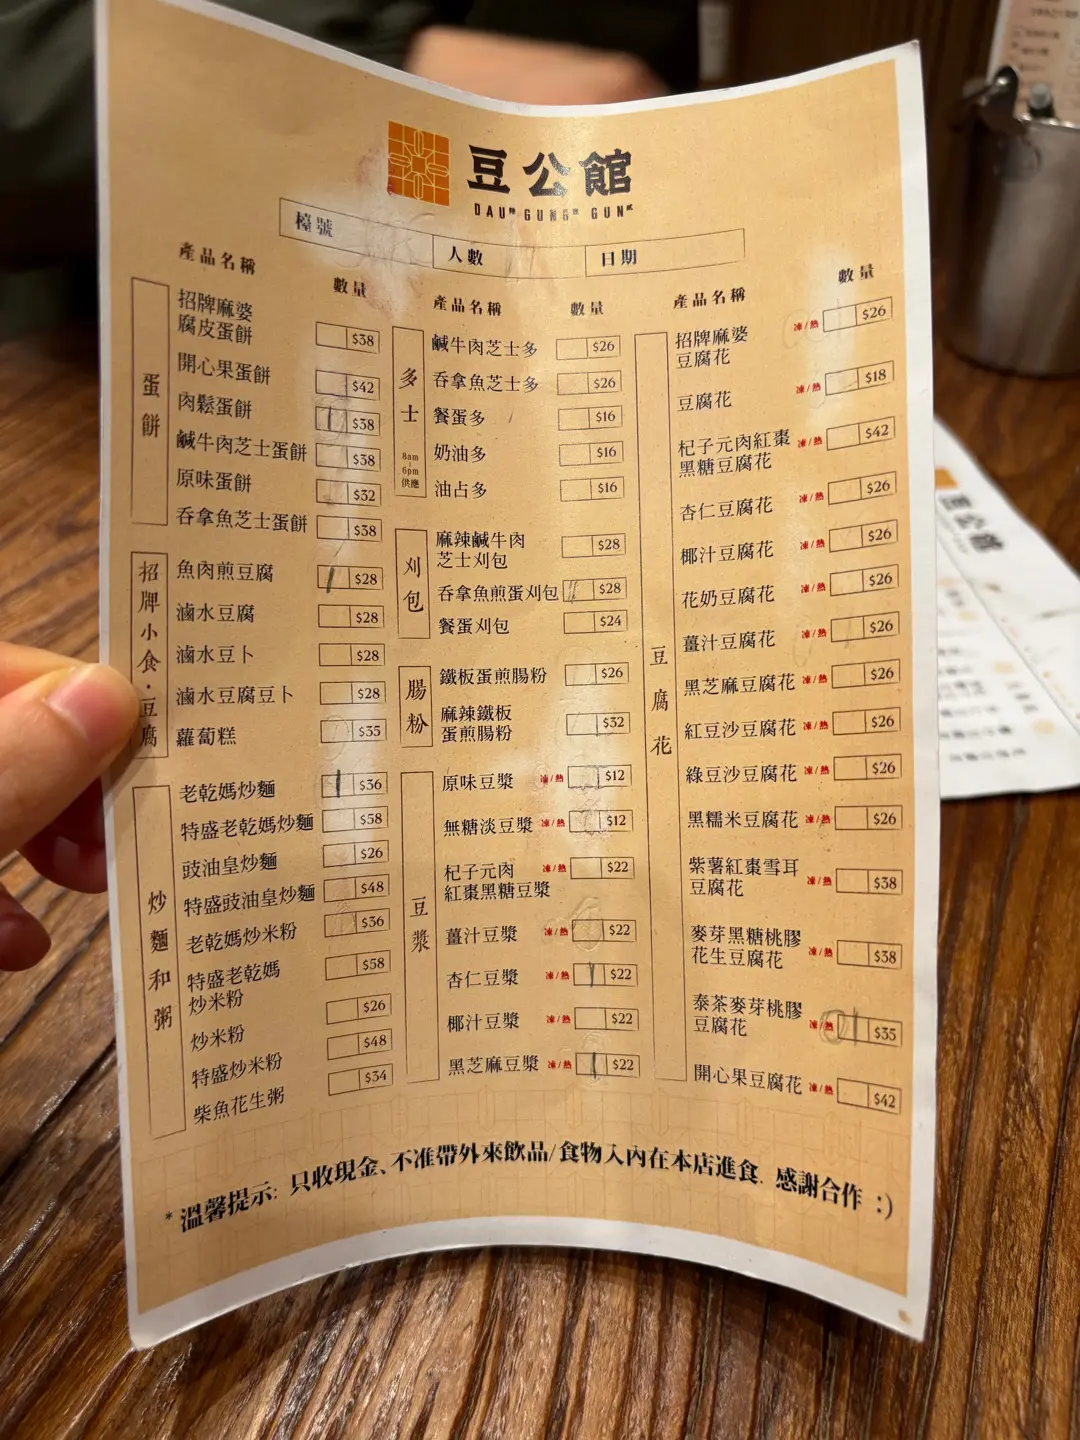 豆公館
DAU GUNG GUN
檯號
人數
日期
產品名稱
數量
蛋餅
招牌麻婆
腐皮蛋餅
$38
開心果蛋餅
$42
肉鬆蛋餅
$38
鹹牛肉芝士蛋餅
$38
原味蛋餅
$32
吞拿魚芝士蛋餅
$38
招牌小食·豆腐
魚肉煎豆腐
$28
滷水豆腐
$28
滷水豆卜
$28
滷水豆腐豆卜
$28
蘿蔔糕
$35
炒麵和粥
老乾媽炒麵
$36
特盛老乾媽炒麵
$58
豉油皇炒麵
$26
特盛豉油皇炒麵
$48
老乾媽炒米粉
$36
特盛老乾媽
炒米粉
$58
炒米粉
$26
特盛炒米粉
$48
柴魚花生粥
$34
產品名稱
數量
多士
8am
-
6pm
供應
鹹牛肉芝士多
$26
吞拿魚芝士多
$26
餐蛋多
$16
奶油多
$16
油占多
$16
刈包
麻辣鹹牛肉
芝士刈包
$28
吞拿魚煎蛋刈包
$28
餐蛋刈包
$24
腸粉
鐵板蛋煎腸粉
$26
麻辣鐵板
蛋煎腸粉
$32
豆漿
原味豆漿 凍/熱 $12
無糖淡豆漿 凍/熱 $12
杞子元肉
紅棗黑糖豆漿
凍/熱 $22
薑汁豆漿 凍/熱 $22
杏仁豆漿 凍/熱 $22
椰汁豆漿 凍/熱 $22
黑芝麻豆漿 凍/熱 $22
產品名稱
數量
豆腐花
招牌麻婆
豆腐花
凍/熱 $26
豆腐花 凍/熱 $18
杞子元肉紅棗
黑糖豆腐花
凍/熱 $42
杏仁豆腐花 凍/熱 $26
椰汁豆腐花 凍/熱 $26
花奶豆腐花 凍/熱 $26
薑汁豆腐花 凍/熱 $26
黑芝麻豆腐花 凍/熱 $26
紅豆沙豆腐花 凍/熱 $26
綠豆沙豆腐花 凍/熱 $26
黑糯米豆腐花 凍/熱 $26
紫薯紅棗雪耳
豆腐花
凍/熱 $38
麥芽黑糖桃膠
花生豆腐花
凍/熱 $38
泰茶麥芽桃膠
豆腐花
凍/熱 $35
開心果豆腐花 凍/熱 $42
*溫馨提示: 只收現金、不准帶外來飲品/食物入內在本店進食. 感謝合作 :)
豆公館